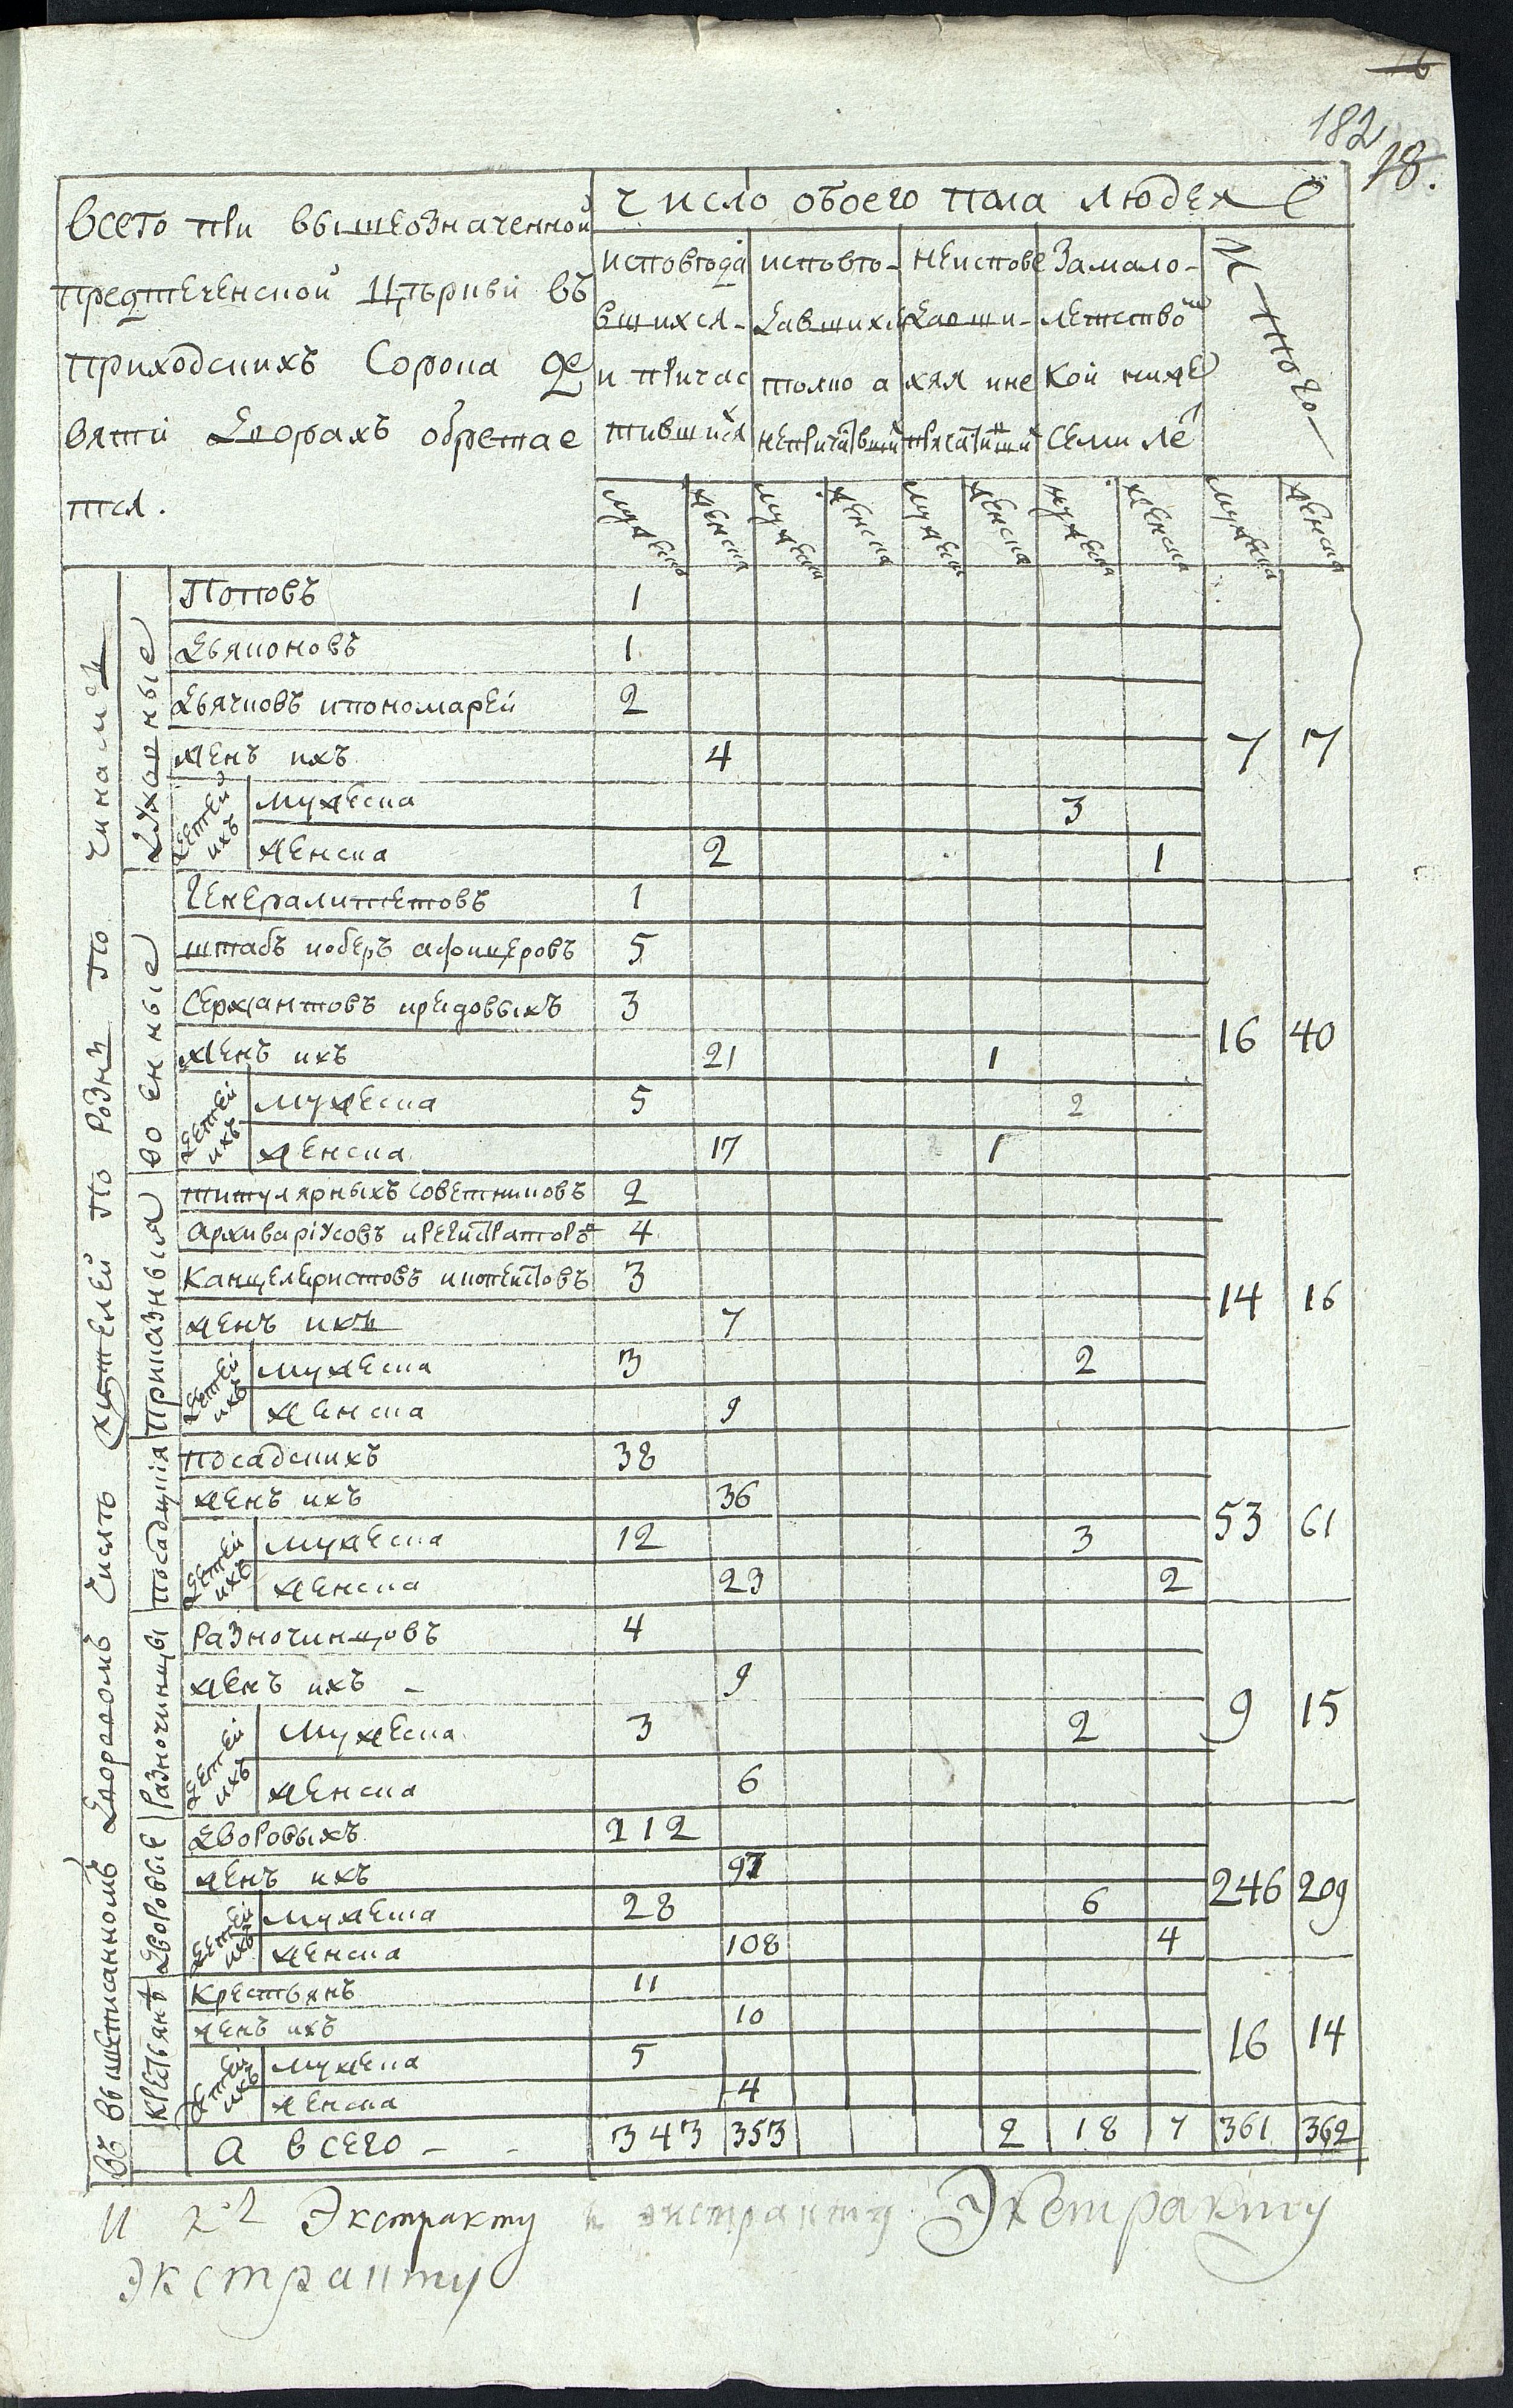 16
182
18.
всего при вышеозначенной
предтеченской цркви въ
приходскихъ сорока де
вяти дворахъ обретае
тся.
число обоего пола людей
исповеда
вшихся
и причас
тившихся
исповедо-
вавшихся
токмо а
непричаствшихся
неиспове
давши-
хся и не
За мало-
летство
кой ниже
семи ле
И того
мужеска женска мужеска женска мужеска женска мужеска женска мужеска женска
въ вышеписанномъ дворовомъ числе жителей по рознь по чинамъ
Духовные
Поповъ 1
Дьяконовъ 1
Дьячковъ и пономарей 2
женъ ихъ 4 7 7
детей ихъ мужеска 3
женска 2 1
военные
Генералитетовъ 1
штабъ и оберъ афицеровъ 5
Сержантовъ и редовыхъ 3
женъ ихъ 21 1 16 40
детей ихъ мужеска 5 2
женска 17 1
Приказныя
титулярныхъ советниковъ 2
архиваріусовъ и регистраторовъ 4
Канцеляристовъ и копеистовъ 3
женъ ихъ 7 14 16
детей ихъ мужеска 3 2
женска 9
посадщкія
посадскихъ 38
женъ ихъ 36
детей ихъ мужеска 12 3 53 61
женска 23 2
Разночинцы
Разночинцовъ 4
женъ ихъ - 9
детей ихъ мужеска 3 2 9 15
женска 6
Дворовые
Дворовыхъ 212
женъ ихъ 97
детей ихъ мужеска 28 6 246 209
женска 108 4
крестьянъ
Крестьянъ 11
женъ ихъ 10
детей ихъ мужеска 5 16 14
женска 4
а всего - - 343 353 2 18 7 361 362
и къ Экстракту к экстракту Экстракту
экстракту